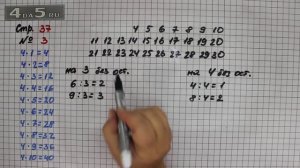 4DA5.RU
Стр. 37
№ 3
4 5 6 7 8 9 10
11 12 13 14 15 16 17 18 19 20
21 22 23 24 25 26 27 28 29 30
4·1=4
4·2=8
4·3=12
4·4=16
4·5=20
4·6=24
4·7=28
4·8=32
4·9=36
4·10=40
на 3 без ост.
6:3=2
9:3=3
на 4 без ост.
4:4=1
8:4=2